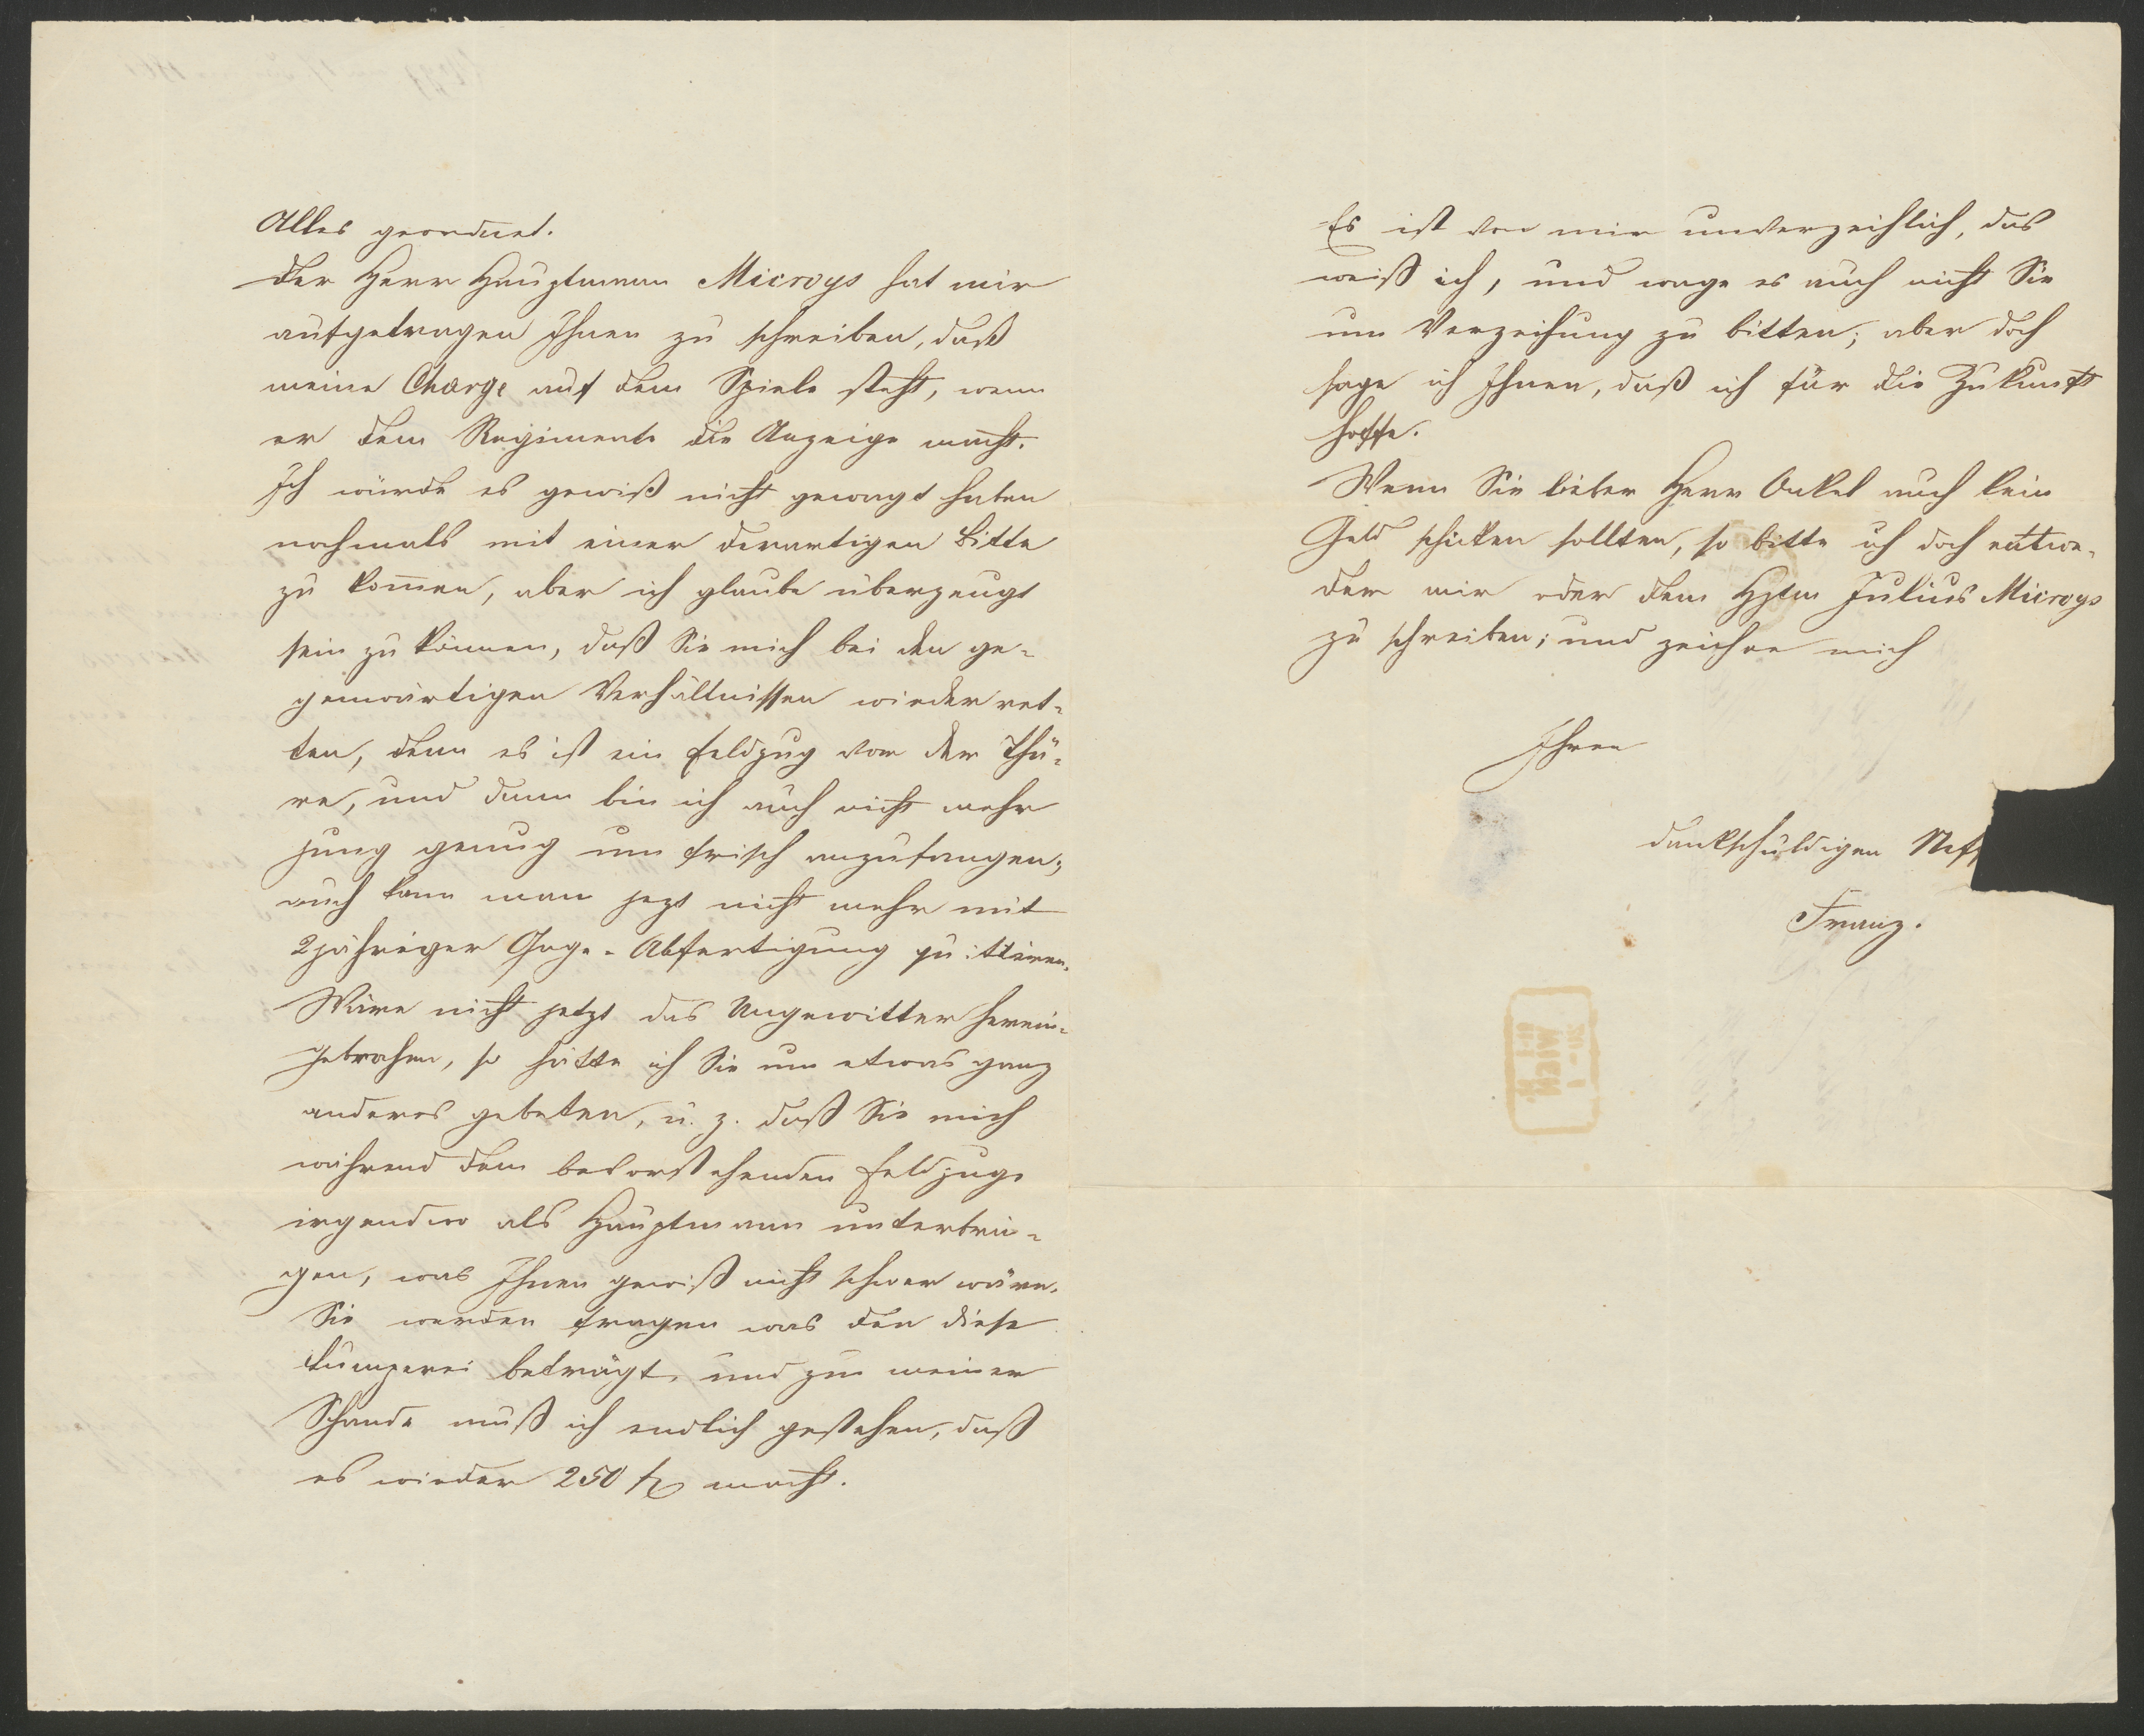 Alles geordnet.
Der Herr Hauptmann Microys hat mir
aufgetragen Ihnen zu schreiben, daß
meine Charge auf dem Spiele steht, wenn
er dem Regimente die Anzeige macht.
Ich würde es gewiß nicht gewagt haben
nochmals mit einer derartigen Bitte
zu kom̄en, aber ich glaube überzeugt
sein zu können, daß Sie mich bei den ge-
genwärtigen Verhältnissen wieder ret-
ten, denn es ist ein Feldzug vor der Thü-
re, und dann bin ich auch nicht mehr
jung genug um frisch anzufangen;
auch kann man jezt nicht mehr mit
2jähriger Gage-Abfertigung quittieren.
Wäre nicht jetzt das Ungewitter herein-
gebrochen, so hätte ich Sie um etwas ganz
anderes gebeten, u. z. daß Sie mich
während dem bevorstehenden Feldzuge
irgendwo als Hauptmann unterbrin-
gen, was Ihnen gewiß nicht schwer wäre.
Sie werden fragen was den diese
Lumperei beträgt, und zu meiner
Schande muß ich endlich gestehen, daß
es wieder 250 fl macht.
Es ist von mir unverzeihlich, das
weiß ich, und wage es auch nicht Sie
um Verzeihung zu bitten; aber doch
sage ich Ihnen, daß ich für die Zukunft
hoffe.
Wenn Sie lieber Herr Onkel auch kein
Geld schicken sollten, so bitte ich doch entwe-
der mir oder dem Hptm Julius Microys
zu schreiben; und zeichne mich
Ihren
dankschuldigen Nef
Franz.
WIEN